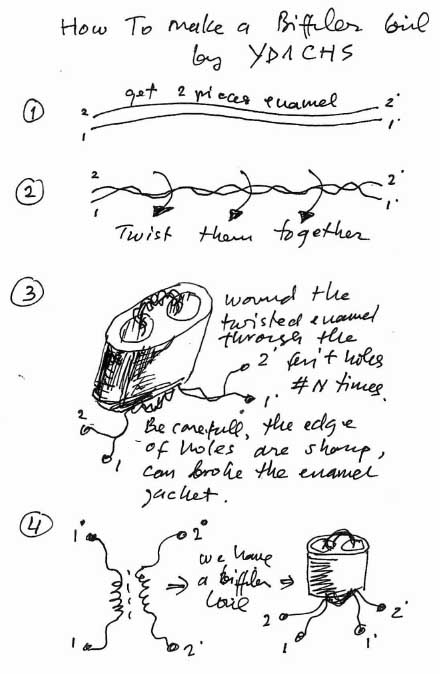 How To make a Biffiler Coil
by YD1CHS
1
get 2 pieces enamel
2 2'
1 1'
2
2 2'
1 1'
Twist them together
3
wound the
twisted enamel
through the
2' ferit holes
# N times.
1'
2
1
Be carefull, the edge
of holes are sharp,
can broke the enamel
jacket.
4
1' 2'
we have
a Biffiler
Coil
1 2'
2 2'
1 1'